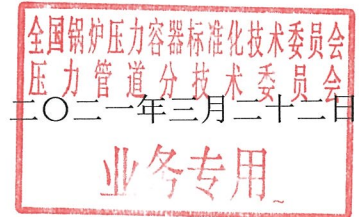 全国锅炉压力容器标准化技术委员会
压力管道分技术委员会
二〇二一年三月二十二日
业务专用